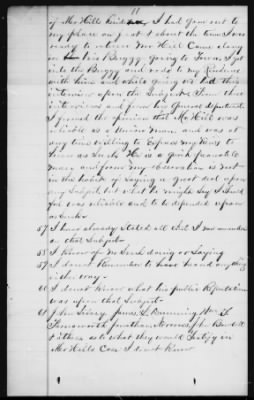 11
of Mr Hills I had gone out to
my place and just about the time I was
ready to return Mr Hill Came along
in his Buggy going to Town I got
into the Buggy and rode to my Residence
with him and while going we had this
interview upon the Subject & from these
interviews and from his General deportment
I formed the opinion that Mr Hill was
reliable as a Union man and was at
any time willing to Express my views to
him as Such He is a quiet peaceable
man and from my observation is not
in the habit of saying a great deal upon
any Subject but what he might Say I should
feel was reliable and to be depended upon
as Such
57 I have already Stated all that I now remember
on that Subject
58 I know of no Such doing or Saying
59 I do not Remember to have heard anything
in this way
60 I do not know what his public Reputation
was upon that Subject
61 James L. Dunning Wm
Farnsworth Jonathan Norcross
& others as to what they would Testify in
Mr Hills Case I do not know